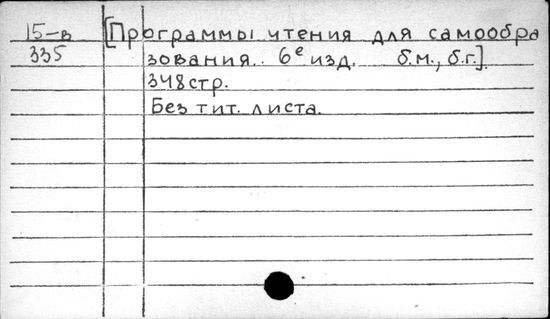 15-в [Программы чтения для самообра
335 зования. 6е изд. б.м., б.г.]
348 стр.
Без тит. листа.